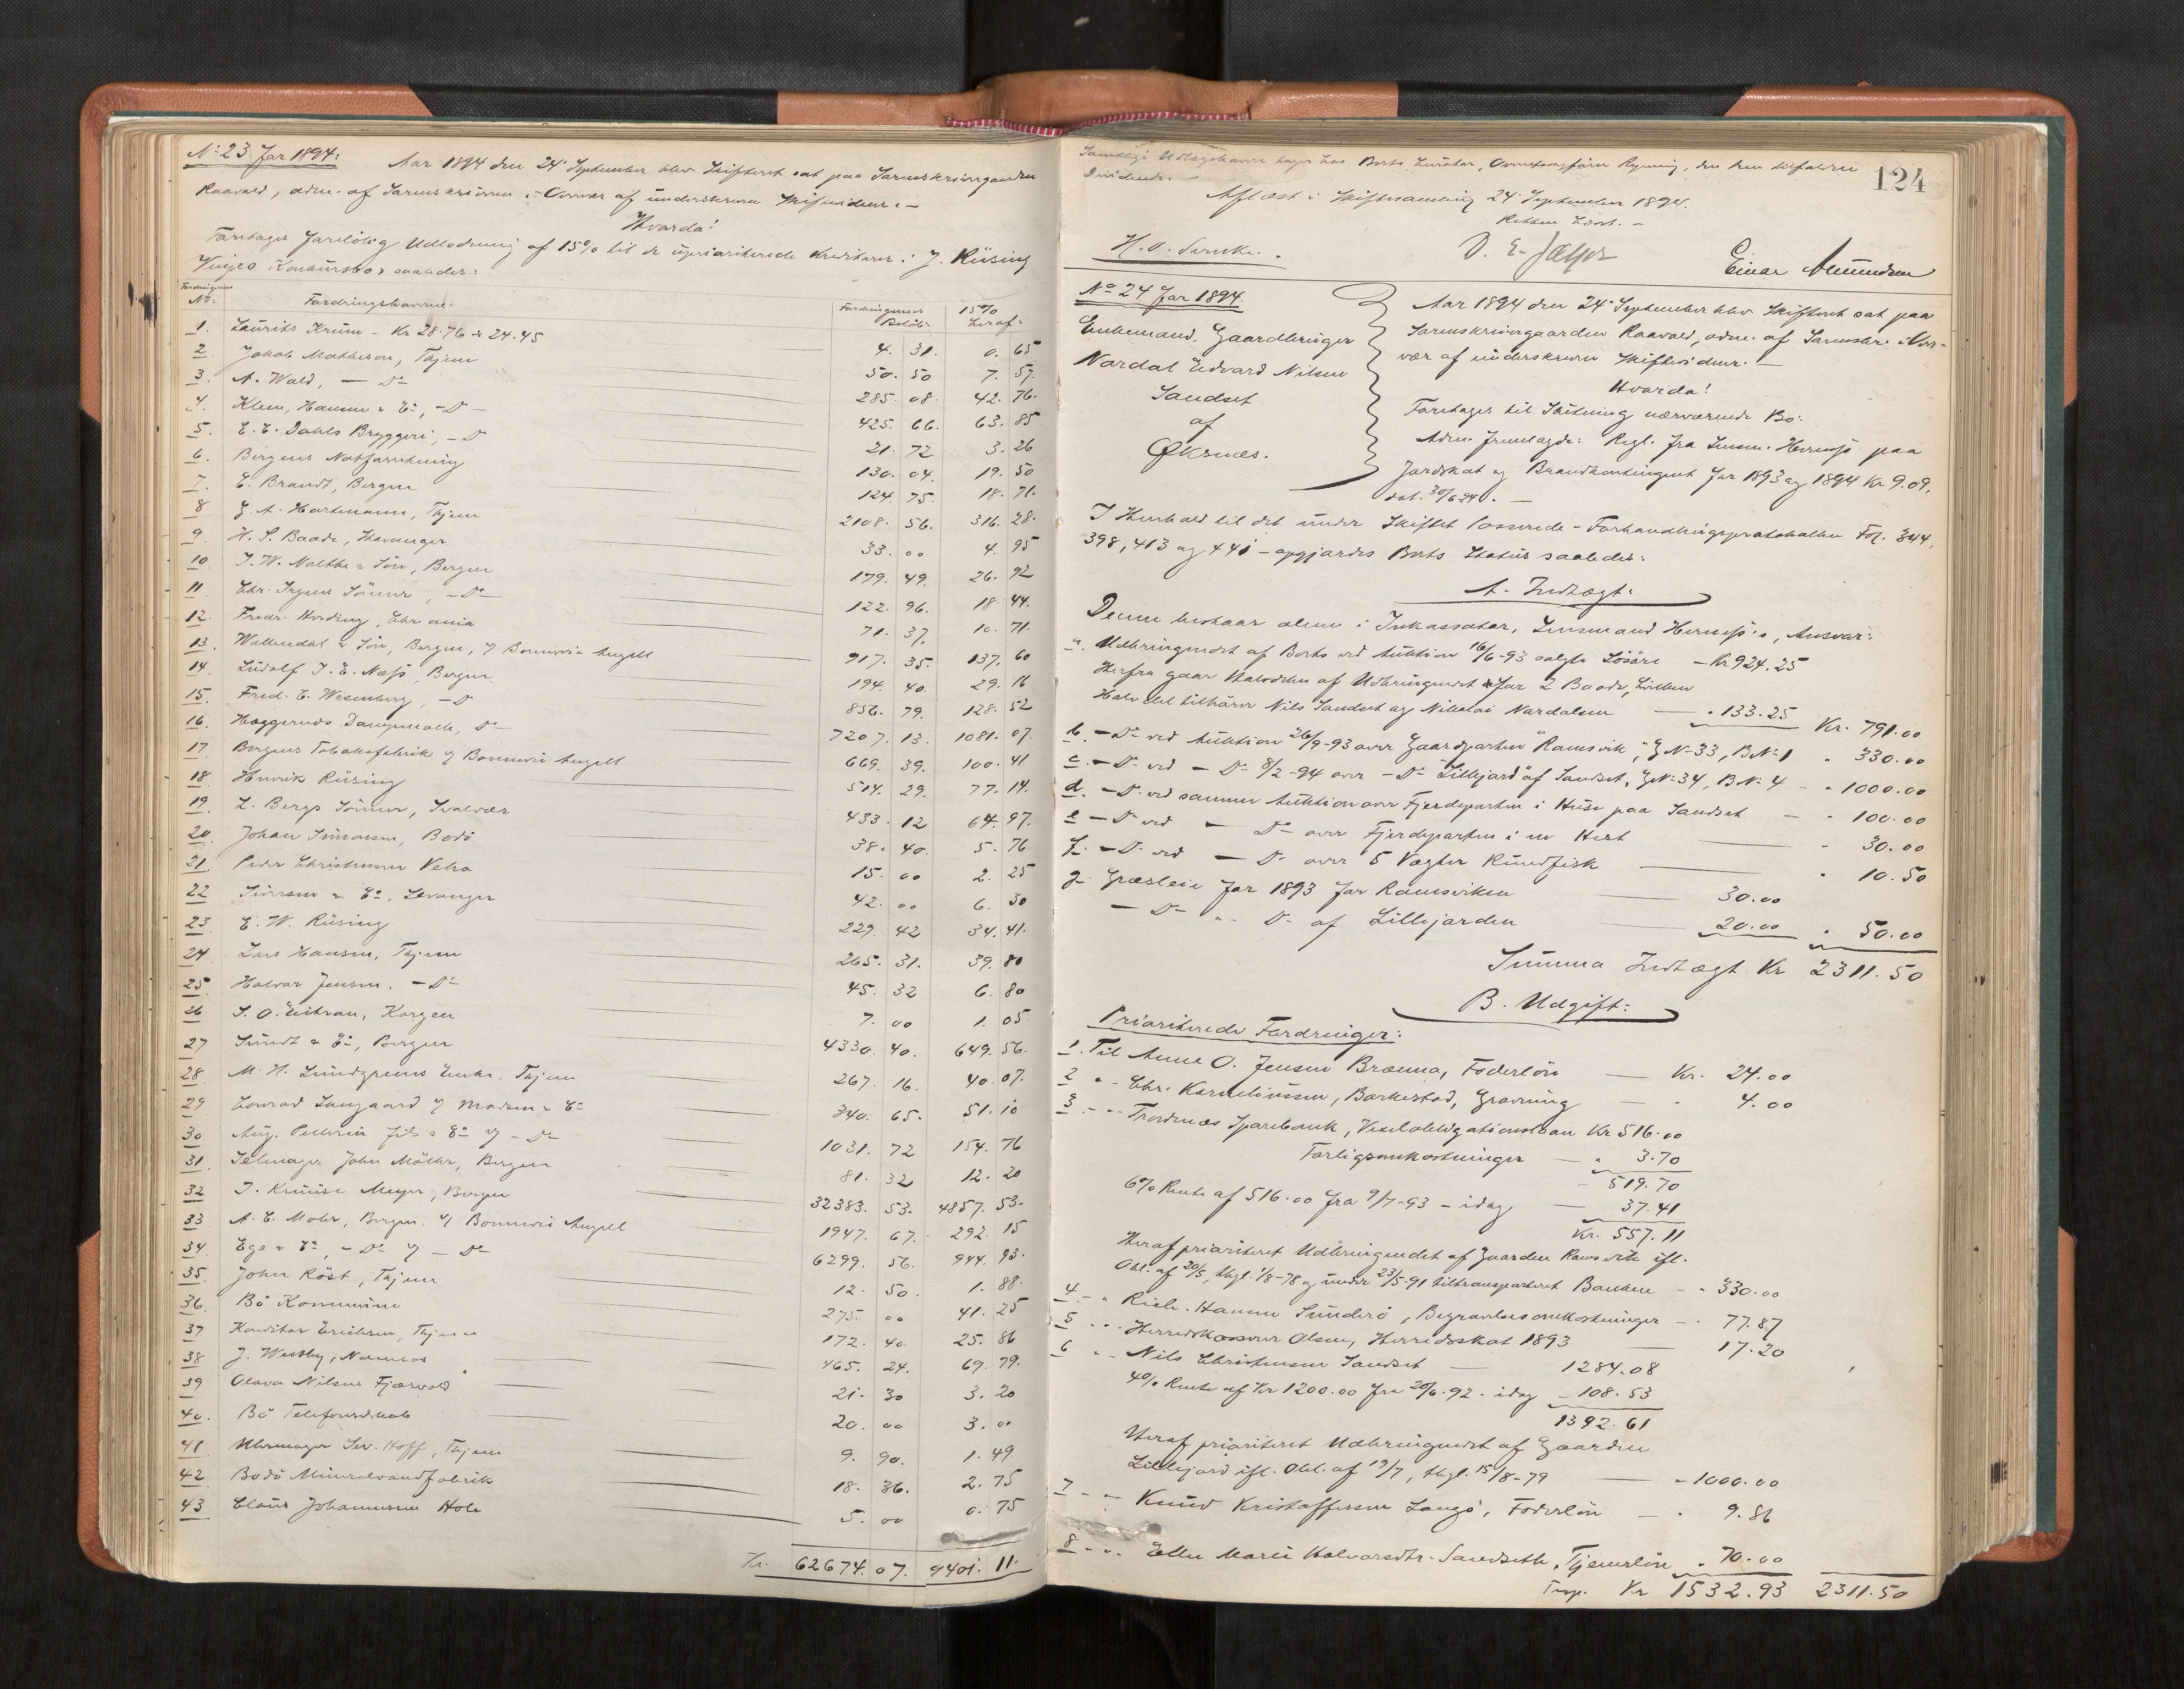 No 23 for 1894:
Aar 1894 den 24' September blev Skifteret sat paa Sorenskrivergaarden
Raavold, adm. af Sorenskriveren i Overvær af underskrevne Skiftevidner. —
Hvorda!
Foretages foreløbig Udlodning af 15% til de uprioriterede Kreditorer i J. Rüsing
Vinjes Konkursbo saaledes:
Fordringernes No: Fordringshavere: Fordringernes Beløb: 15% heraf:
1. Laurits Krüm - Kr 28.76 & 24.45 4. 31. 0. 65
2. Jakob Mathisen, Thjem 50. 50 7. 57.
3. A. Wold, — Do 285. 08. 42. 76.
4. Klem, Hansen & Co, - D - 425. 66. 63. 85
5. E. C. Dahls Bryggeri, - D 21. 72 3. 26
6. Bergens Notforretning 130. 04. 19. 50
7. C. Brandt, Bergen 124. 75. 18. 71.
8 G. A. Hartmann, Thjem 2108. 56. 316. 28.
9. H. S. Baade, Stavanger 33. 00 4. 95
10 J. W. Malthe & Sön, Bergen 179. 49. 26. 92
11 Chr. Irgens Sönner, - Do - 122. 96. 18. 44.
12. Fredr. Hording, Chr ania 71. 37. 10. 71.
13. Wallendal & Sön, Bergen, v/ Bonnevie Angell 917. 35. 137. 60
14. Ludolf J. E. Næss, Bergen 194. 40. 29. 16
15. Fred. C. Wesenberg, - D 856. 79. 128. 52
16. Heggernes Dampmølle, Do 7207. 13. 1081. 07.
17 Bergens Tobaksfabrik v/ Bonnevie Angell 669. 39. 100. 41
18 Henrik Rüsing 514. 29. 77. 14.
19. L. Bergs Sönner, Svolvær 433. 12 64. 97.
20. Johan Simonsen, Bodö 38. 40. 5. 76
21 Peder Christensen 15. 00 2. 25
22 & Co, Levanger 42. 00 6. 30
23. E. W. Rüsing 229. 42 34. 41.
24 Lars Hansen, Thjem 265. 31. 39. 80
25 Halvar Jensen, - Do 45. 32 6. 80
26 7. 00 1. 05
27 Sundt & Co, Bergen 4330. 40. 649. 56.
28. M. H. Lundgrens Enke, Thjem 267. 16. 40. 07.
29 Conrad Langaard v/ Madsen & Co 340. 65. 51. 10
30 Aug. Pellerin fils & Co v/ - Do 1031. 72 154. 76
31. Selmager John Möller, Bergen 81. 32 12. 20
32 J. Kruuse Meyer, Bergen 32383. 53. 4857. 53.
33 A. C. Mohr, Bergen v/ Bonnevie Angell 1947. 67. 292. 15
34. Ege & Co, - Do v/ - Do 6299. 56. 944. 93.
35. John Röst, Thjem 12. 50. 1. 88.
36. Bö Kommune 275. 00 41. 25
37 Konditor Erichsen, Thjem 172. 40. 25. 86
38 J. Westby, Namsos 465. 24. 69. 79.
39 Olava Nilsen Fjærvold 21. 30 3. 20
40. Bö Telefonselskab 20. 00 3. 00
41. Uhrmager Sev. Hoff, Thjem 9. 90. 1. 49
42 Bodö Mineralvandfabrik 18. 36. 2. 75
43 Claus Johannesen Hole 5. 00 0. 75
Kr. 62674. 07. 9401. 11.
124
Samtlige Udlægshavere tager hos Boets Kurator, Overretssagfører Rynning, den dem tilfaldne
Dividende. —
Aflæst i Skiftesamling 24' September 1894.
Retten hævet. —
Einar Amundsen
No 24 for 1894.
Enkemand, Gaardbruger
Nordal Edvard Nilsen
Sandset
af
Øksnes.
Aar 1894 den 24' September blev Skifteret sat paa
Sorenskrivergaarden Raavold, adm. af Sorenskr. i Over-
vær af underskrevne Skiftevidner. —
Hvorda!
Foretages til Slutning nærværende Bo:
Adm. fremlagde: Regl. fra Lensm. Herness paa
Jordskat og Brandkontingent for 1893 og 1894 Kr 9.09.
dat. 30/6 94. —
I Henhold til det under Skiftet passerede - Forhandlingsprotokollen Fol. 344,
398, 413 og 441 - opgjordes Boets Status saaledes:
A. Indtægt:
Denne bestaar alene i Inkassator, Lensmand Herness's, Ansvar:
a. Udbringendet af Boets ved Auktion 16/6-93 solgte Løsøre - Kr 924.25
Herfra gaar Halvdelen af Udbringendet for 2 Baade, hvilken
Halvdel tilhører Nils Sandset og Nikolai Nordalsen — " 133.25 Kr. 791.00
b. - Do ved Auktion 26/9-93 over Gaardparten "Ramsvik", GNo 33, BNo 1 " 330.00
c. - Do ved - Do 8/2-94 over - Do "Lillejord" af Sandset, GNo 34, BNo 4 - " 1000.00
d. - Do ved samme Auktion over Fjerdeparten i Huse paa Sandset — " 100.00
e - Do ved - Do over Fjerdeparten i en Hest " 30.00
f. - Do ved - Do over 5 Vægter Rundfisk " 10.50
g. Græsleie for 1893 for Ramsviken 30.00
- Do - " - Do af Lillejorden 20.00 " 50.00
Summa Indtægt Kr 2311.50
B. Udgift:
Prioriterede Fordringer:
1. Til Anne O. Jensen Brænna, Foderløn — Kr. 24.00
2 " - Chr. Korneliussen, Barkestad, Gravning — " 4.00
3 - " - Trondenæs Sparebank, Vexelobligationslaan Kr 516.00
Forligsomkostninger — " 3.70
519.70
6% Rente af 516.00 fra 9/7-93 - idag — 37.41
Kr. 557.11
Heraf prioriteret Udbringendet af Gaarden Ramsvik ifl.
Obl. af 20/5, thgl. 1/8-78 og under 23/5-91 tiltransporteret Banken - " 330.00
4 - " Rich. Hansen Sunderö, Begravelsesomkostninger - " 77.87
5 - " - Herredskasserer Olsen, Herredsskat 1893 — 17.20
6 " - Nils Christensen Sandset — 1284.08
4% Rente af Kr 1200.00 fra 20/6-92 - idag - 108.53
1392.61
Heraf prioriteret Udbringendet af Gaarden
Lillejord ifl. Obl. af 19/7, thgl. 15/8-79 — " 1000.00
7 - " - Knud Kristoffersen Langö, Foderløn — " 9.86
8 - " - Ellen Marie Halvorsdtr. Sandseth, Tjenerløn " 70.00
Transp. Kr 1532.93 2311.50